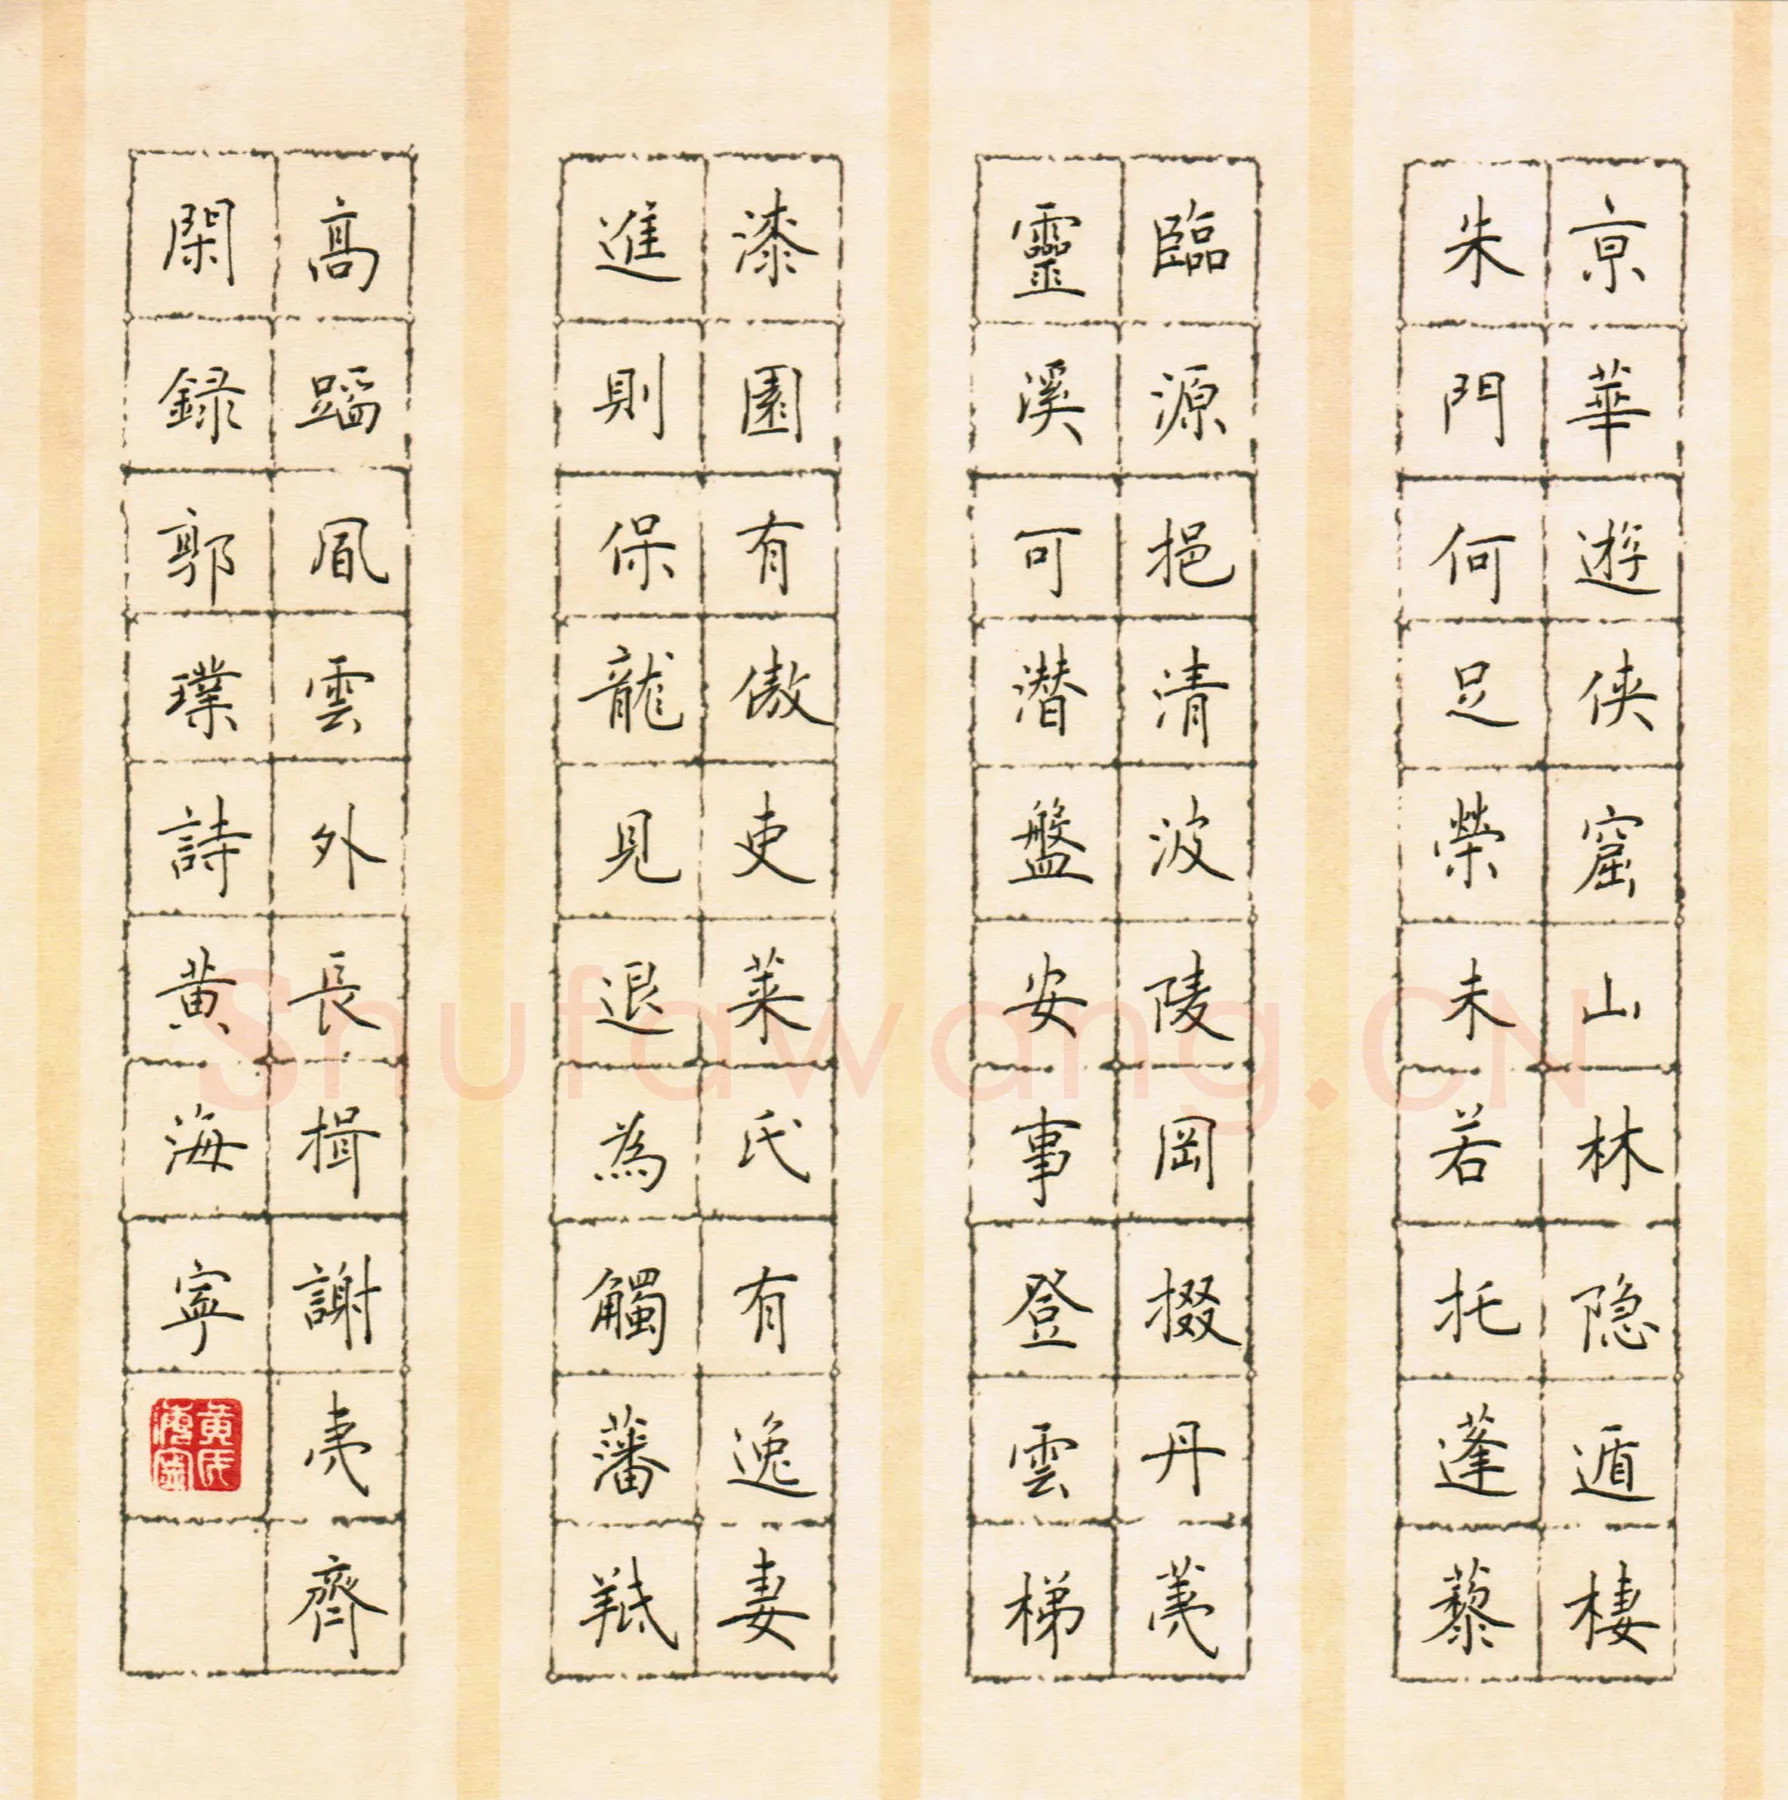 京華遊俠窟山林隐遁棲
朱門何足榮未若托蓬藜
臨源挹清波陵岡掇丹荑
靈溪可潛盤安事登雲梯
漆園有傲吏萊氏有逸妻
進則保龍見退為觸藩羝
高蹈風雲外長揖謝夷齊
閑録郭璞詩黄海寧
Shufawang.CN